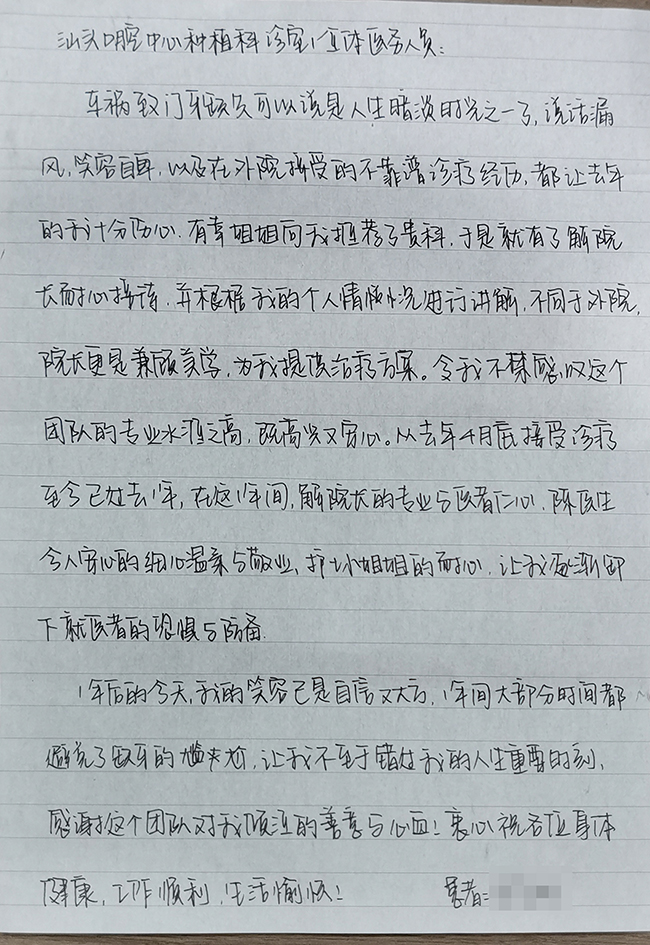 汕头口腔中心种植科诊室1全体医务人员：
车祸致门牙缺失可以说是人生暗淡时光之一了，说话漏
风，笑容自卑，以及在外院接受的不靠谱诊疗经历，都让去年
的我十分伤心。有幸姐姐向我推荐了贵科，于是就有了解院
长耐心接待，并根据我的个人情况进行讲解，不同于外院，
院长更是兼顾美学，为我提供治疗方案。令我不禁感叹这个
团队的专业水准之高，既高兴又安心。从去年4月底接受诊疗
至今已过去1年，在这1年间，解院长的专业与医者仁心，陈医生
令人安心的细心温柔与敬业，护士小姐姐的耐心，让我逐渐卸
下就医者的恐惧与防备。
1年后的今天，我的笑容已是自信又大方，1年间大部分时间都
避免了缺牙的尴尬，让我不至于错过我的人生重要时刻，
感谢这个团队对我倾注的善意与心血！衷心祝各位身体
健康，工作顺利，生活愉快！
患者：